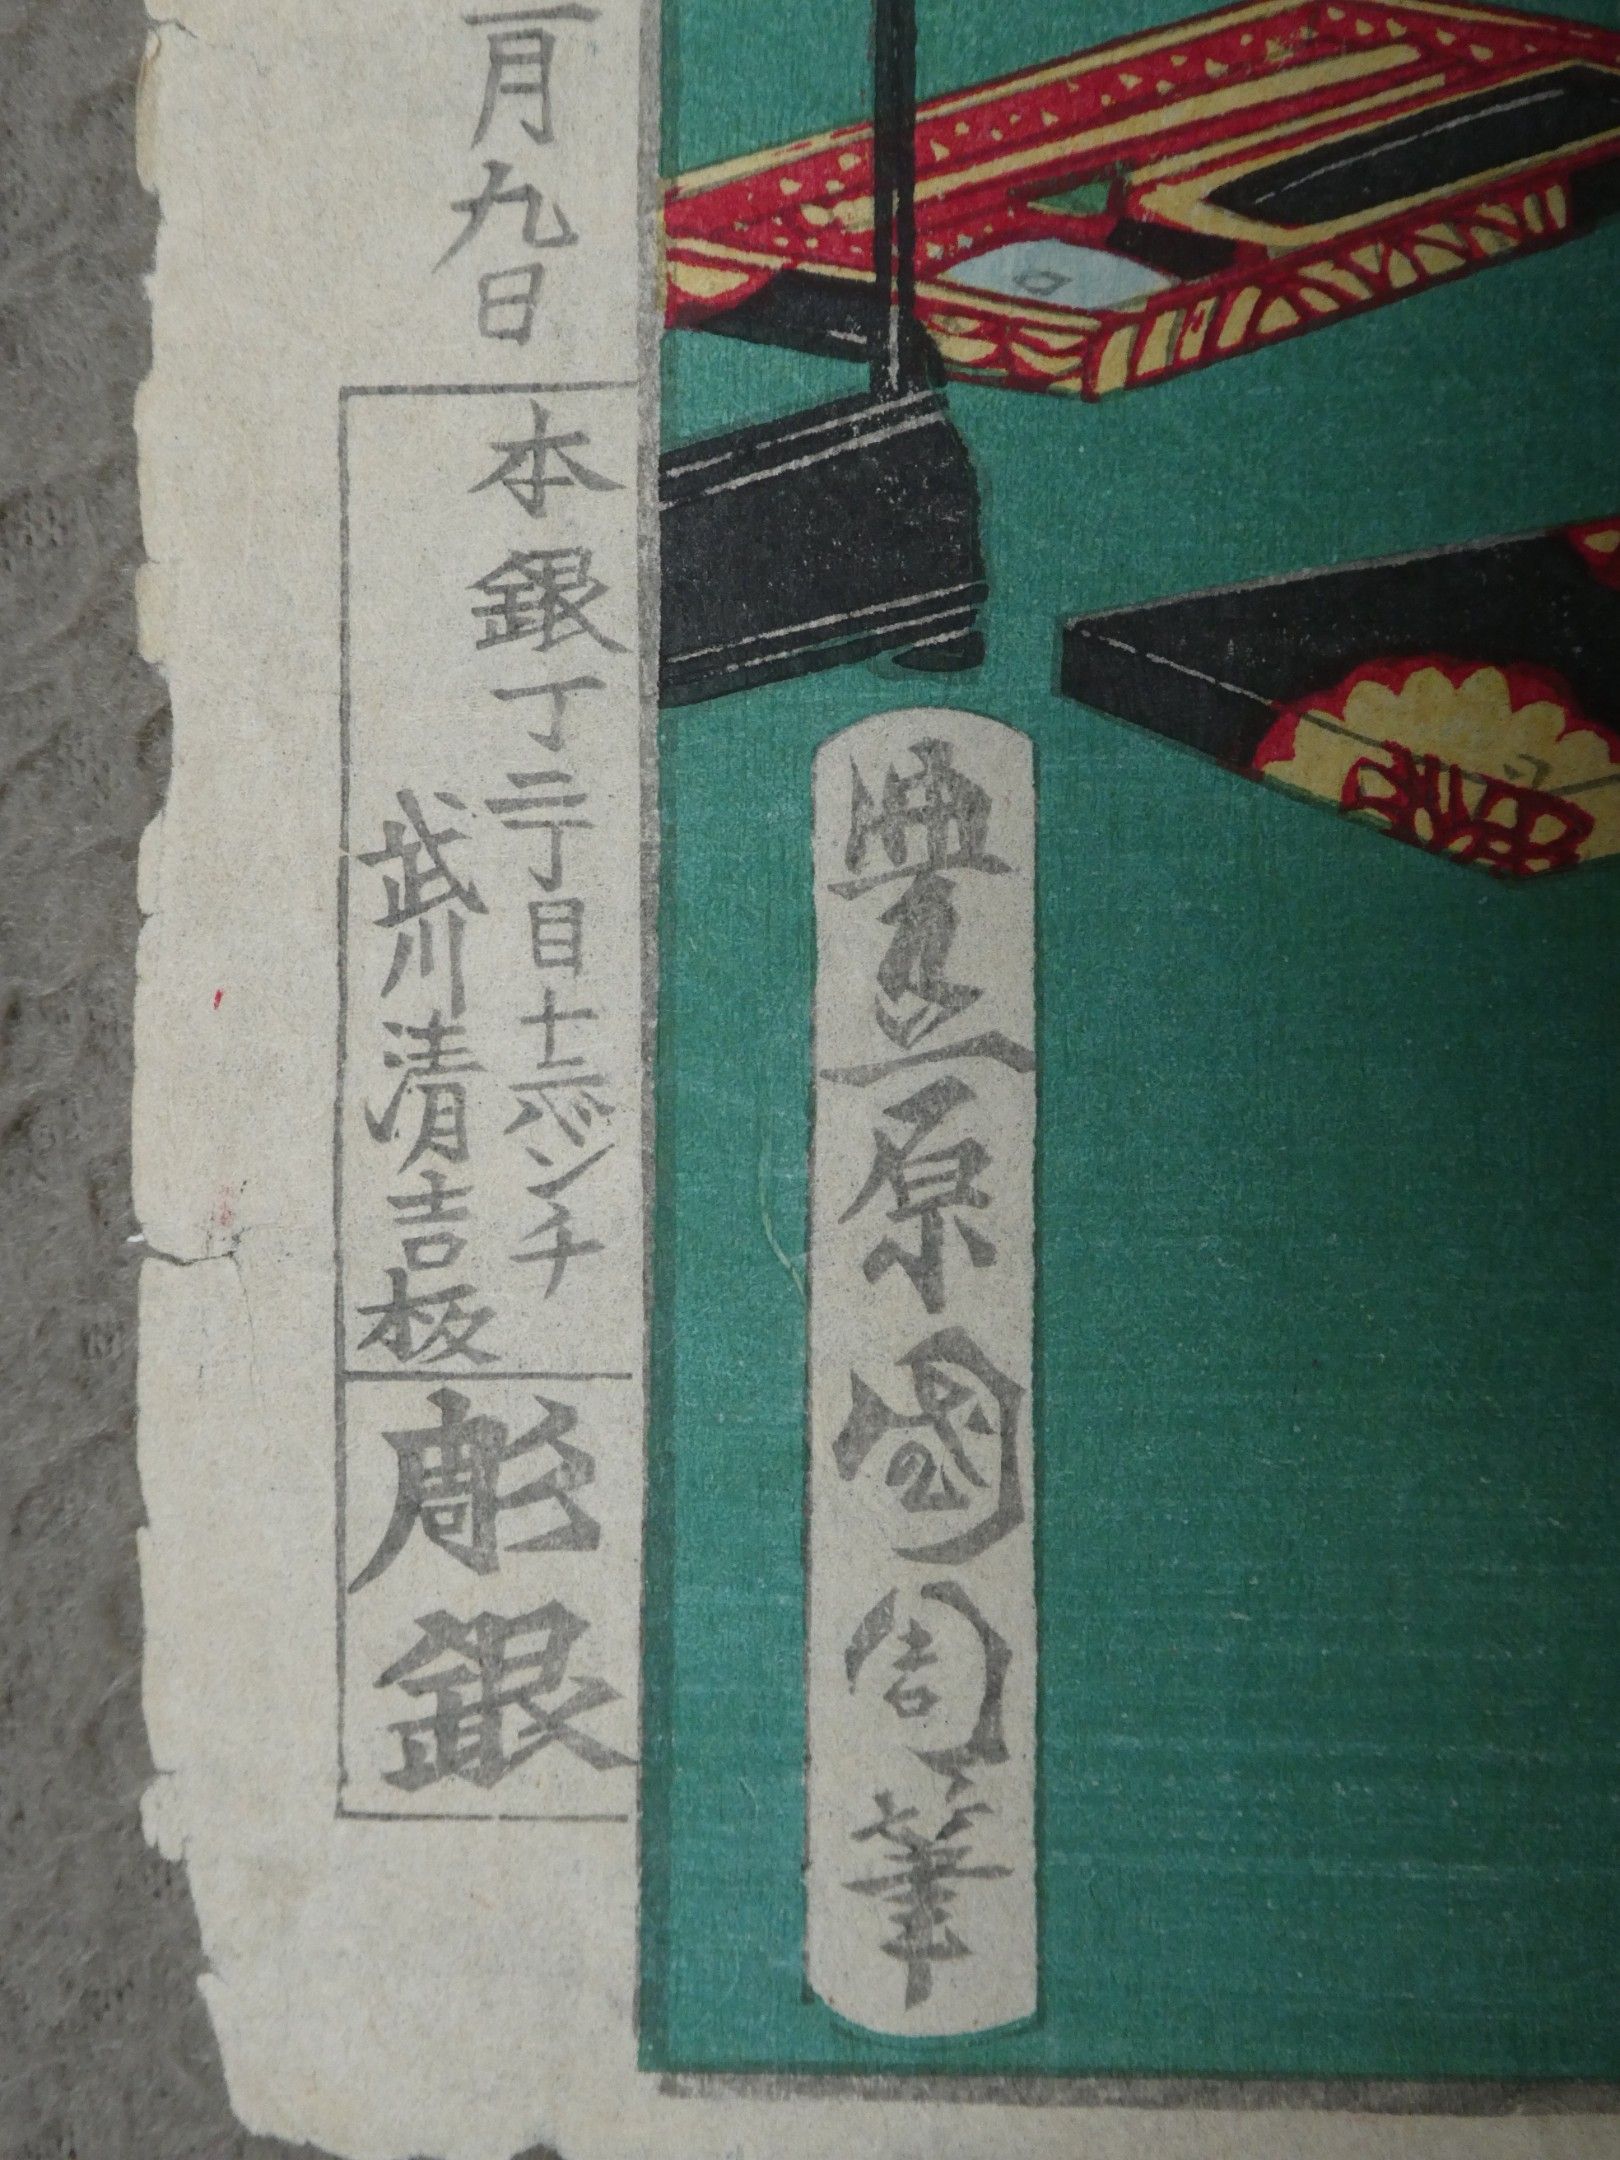 豊原國周筆
月九日
本銀丁二丁目十二バンチ
武川清吉板
彫銀